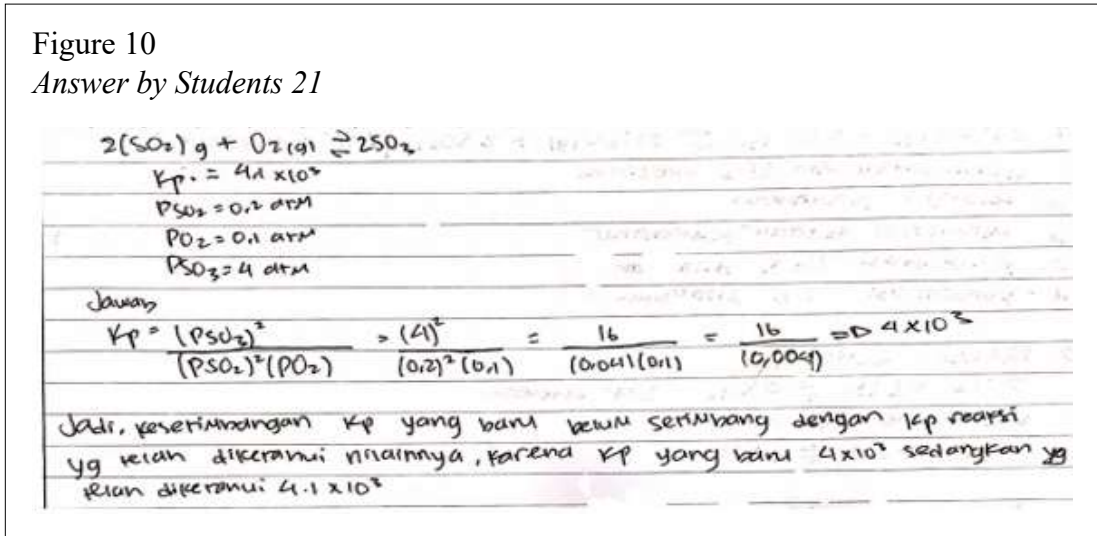 Figure 10
Answer by Students 21
2(SO₂) g + O₂(g) ⇌ 2SO₃
Kp. = 4.1 x10³
PSO₂ = 0,2 atm
PO₂ = 0,1 atm
PSO₃ = 4 atm
Jawab
Kp = (PSO₃)² / (PSO₂)² (PO₂) = (4)² / (0,2)² (0,1) = 16 / (0,04) (0,1) = 16 / (0,004) => 4 x 10³
Jadi, kesetimbangan Kp yang baru belum setimbang dengan Kp reaksi
yg telah diketahui nilainnya, karena Kp yang baru 4x10³ sedangkan yg
telah diketahui 4.1 x 10³